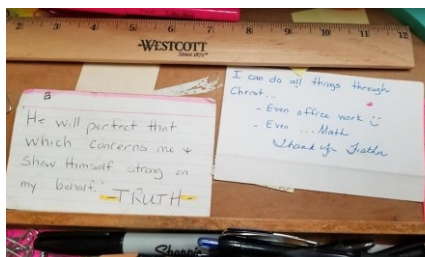 2 3 4 5 6 7 8 9 10 11 12
WESTCOTT
Since 1872
B
"He will perfect that
which concerns me &
show Himself strong on
my behalf."
-TRUTH-
I can do all things through
Christ...
- Even office work
- Even ... Math
Thank You Father
Sharpie